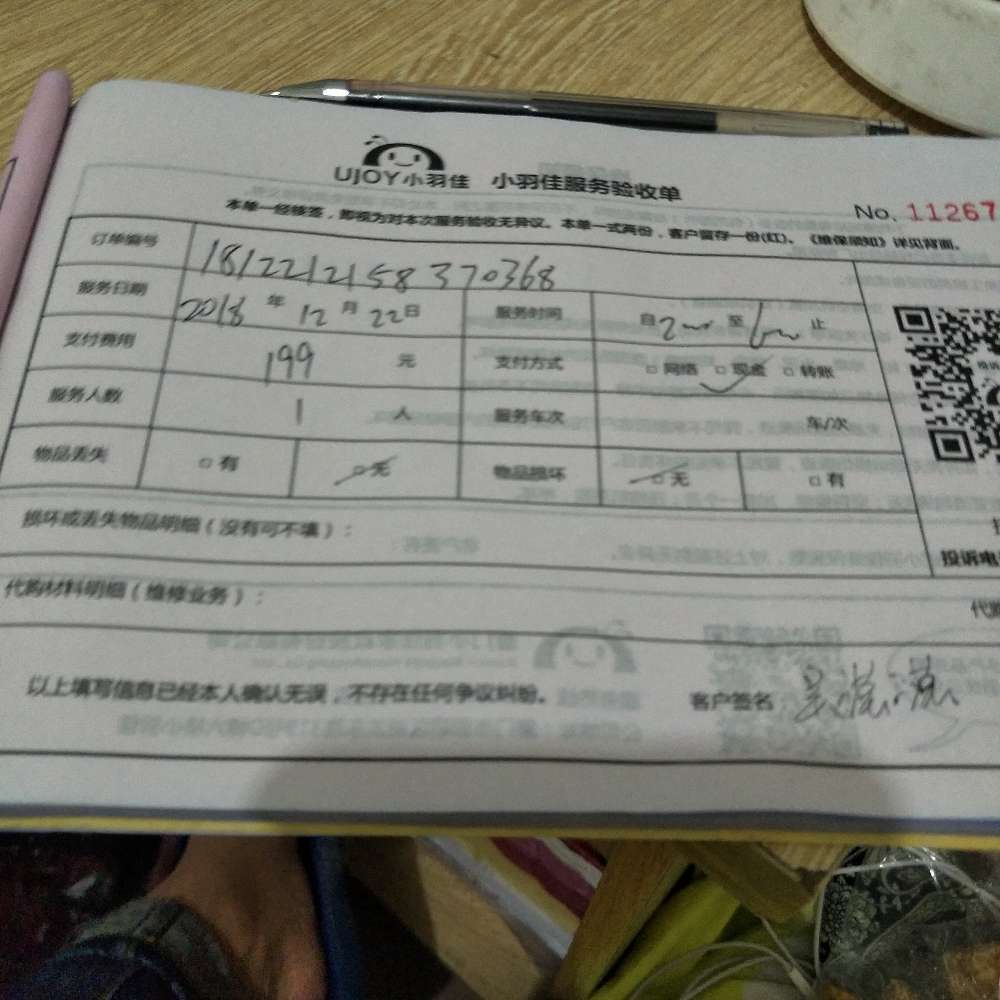 UJOY小羽佳 小羽佳服务验收单
No. 11267
本单一经核签，即视为对本次服务验收无异议。本单一式两份，客户留存一份(红)。《维保须知》详见背面。
订单编号 1812212158370368
服务日期 2018年12月22日 服务时间 自2 至6 止
支付费用 199元 支付方式 □网络 □现金 □转账
服务人数 1人 服务车次 车/次
物品丢失 □有 □无 物品损坏 □无 □有
损坏或丢失物品明细（没有可不填）：
投诉电
代购材料明细（维修业务）：
代购
以上填写信息已经本人确认无误，不存在任何争议纠纷。 客户签名